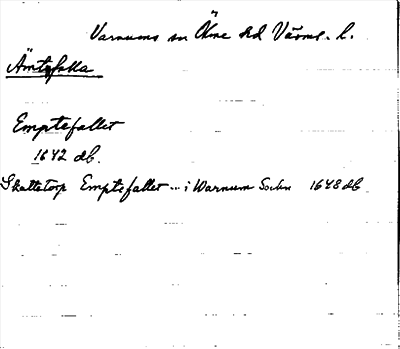 Varnums sn Ölme hd Värml. l.
Ämtefalla
Emptefallet
1642 db.
Skattetorp Emptefallet ... i Warnum Sochn 1648 db